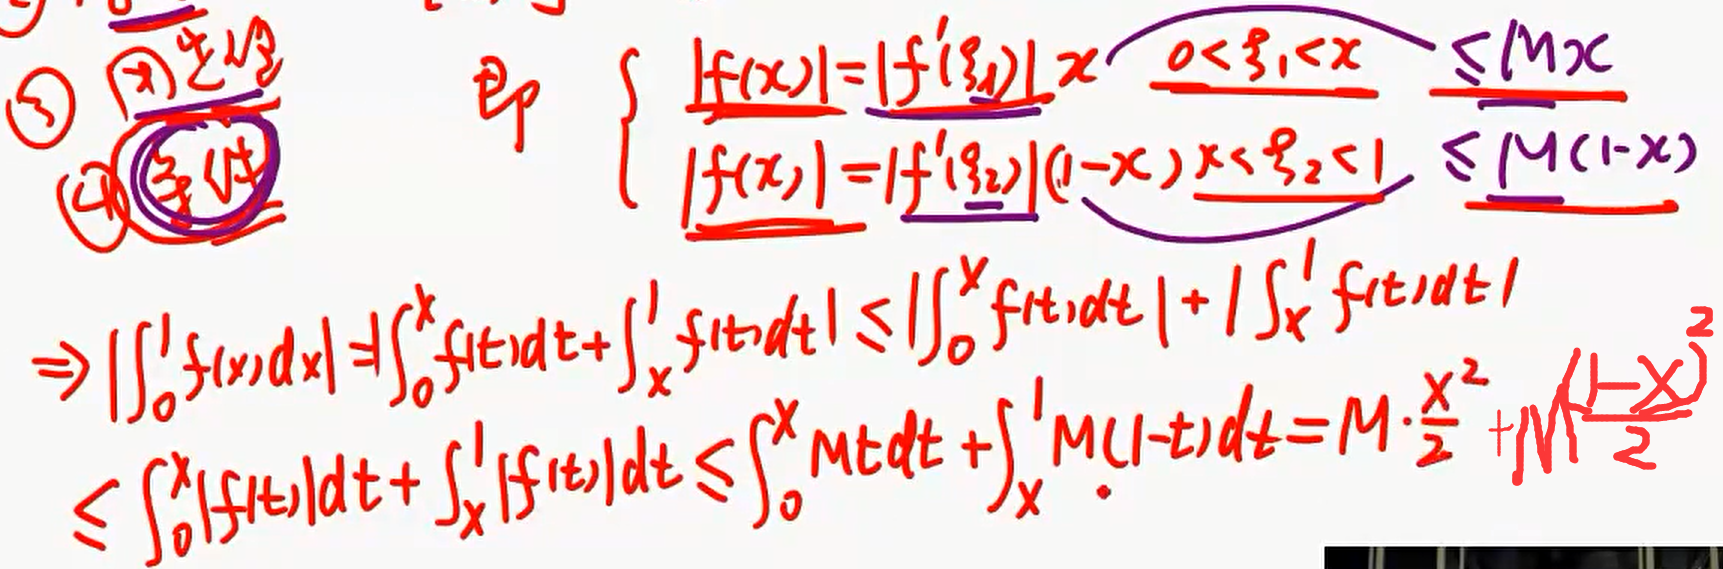 ③ (x) 主线
即 { |f(x)| = |f'(ξ₁)| x 0<ξ₁<x ≤ Mx
④ |f(x)| = |f'(ξ₂)|(1-x) x<ξ₂<1 ≤ M(1-x)
⇒ |∫₀¹ f(x)dx| = |∫₀ˣ f(t)dt + ∫ₓ¹ f(t)dt| ≤ |∫₀ˣ f(t)dt| + |∫ₓ¹ f(t)dt|
≤ ∫₀ˣ |f(t)|dt + ∫ₓ¹ |f(t)|dt ≤ ∫₀ˣ Mtdt + ∫ₓ¹ M(1-t)dt = M·x²/2 + M(1-x)²/2